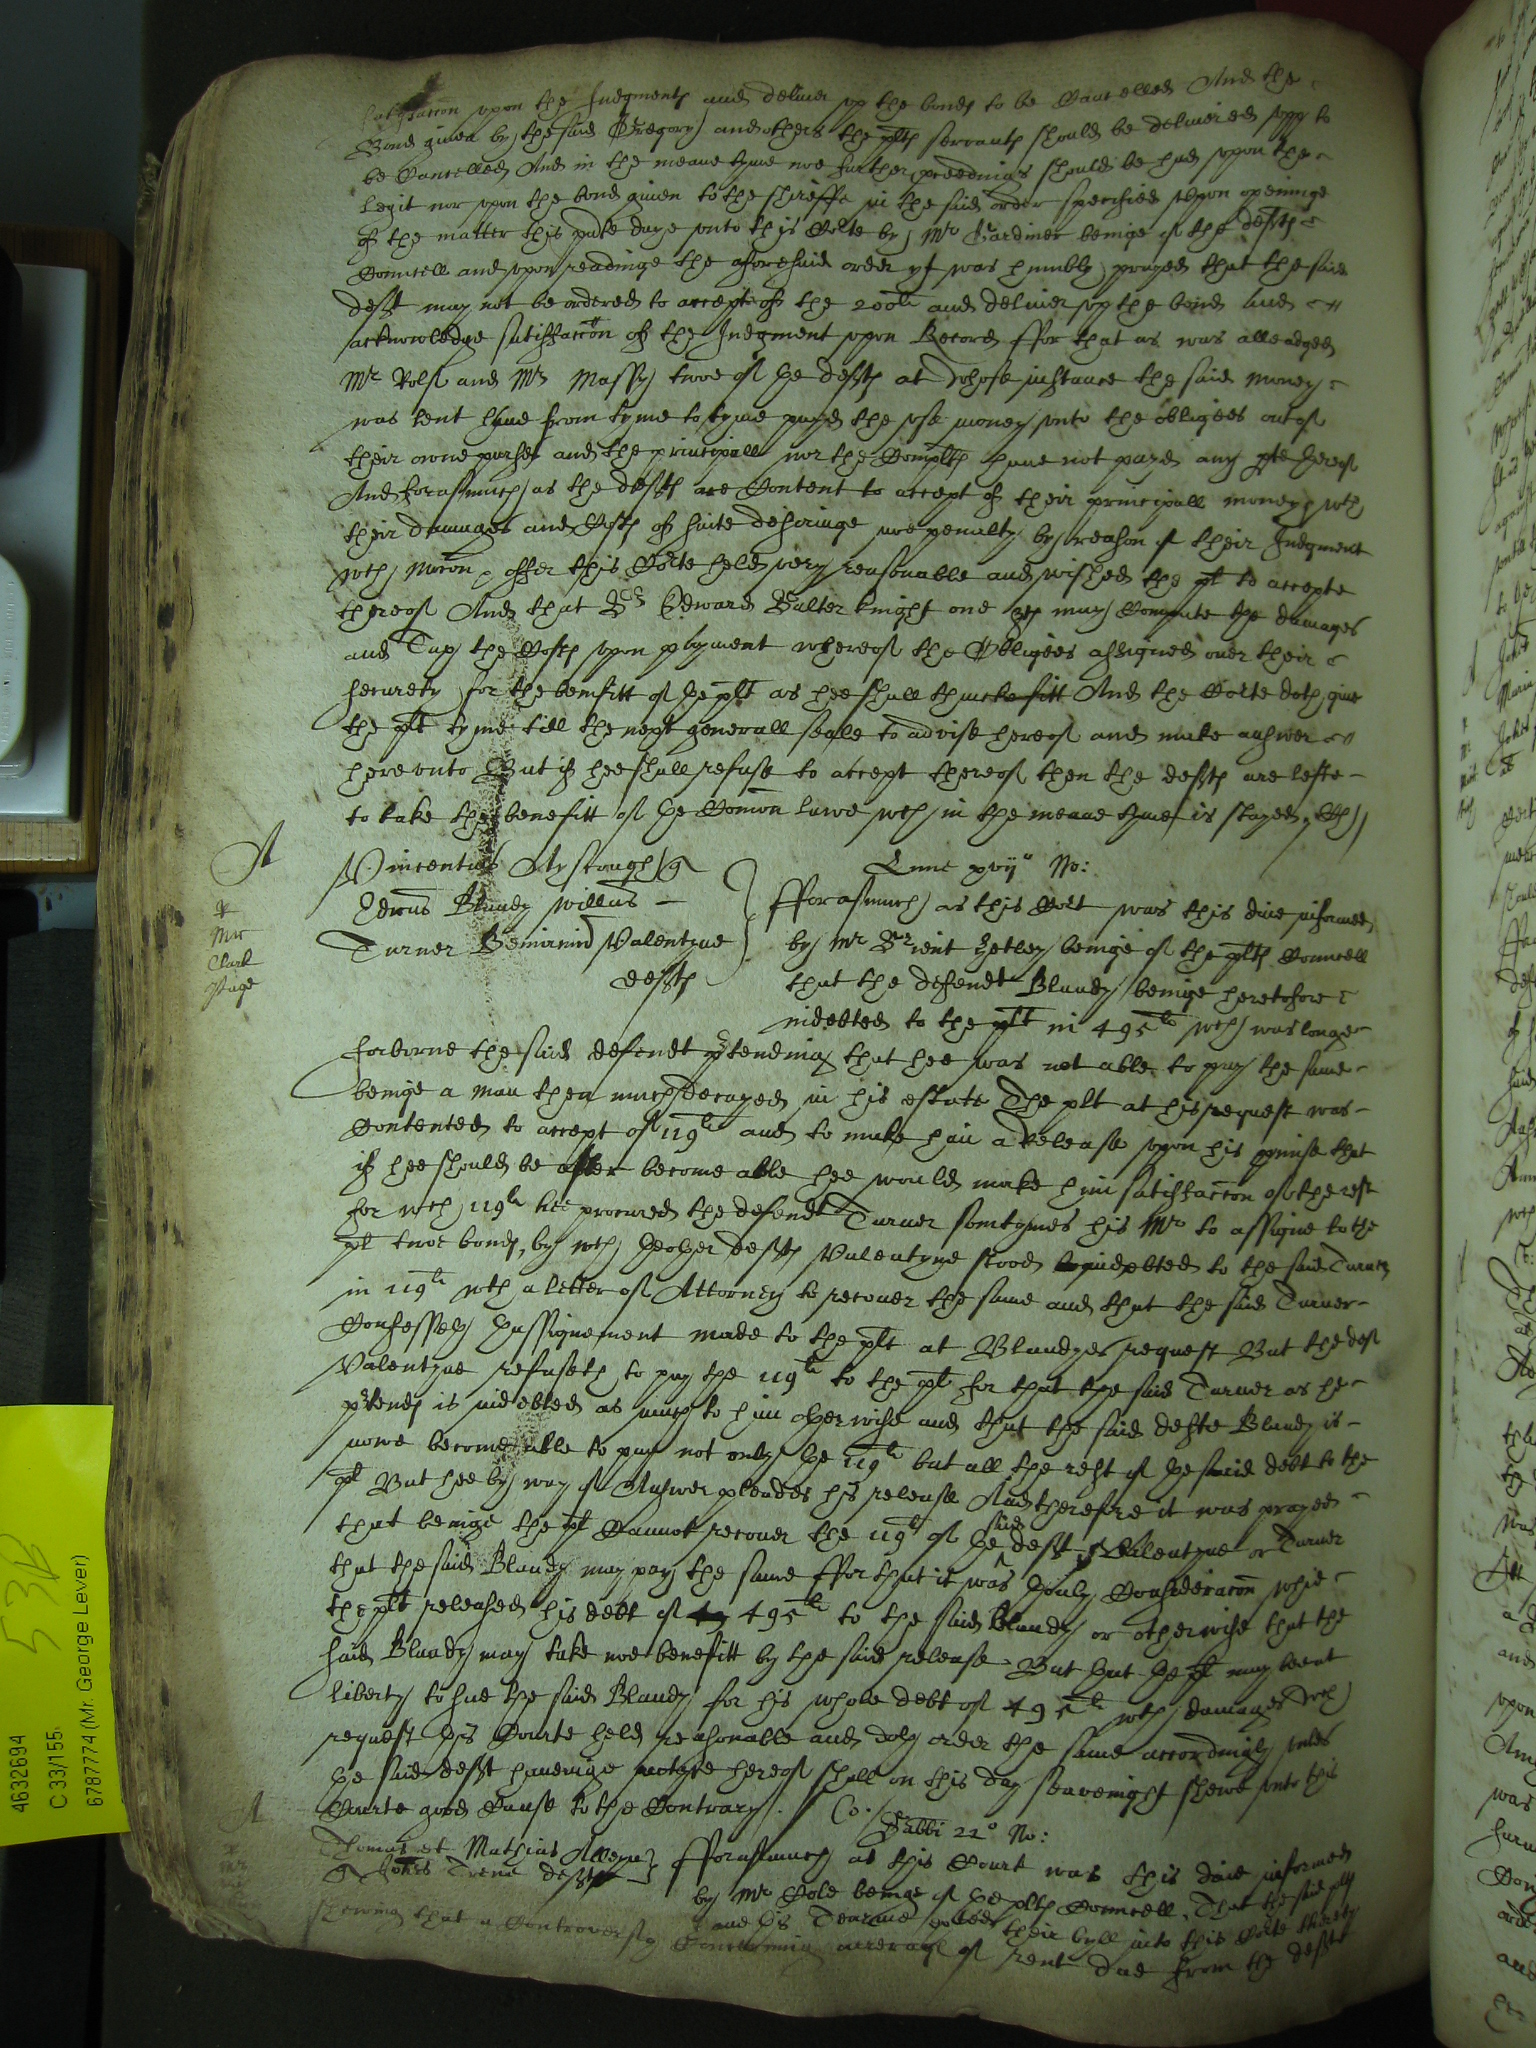 satisfaccon upon the Judgments and deliver upp the bonds to be Cancelled And the
Bond given by the said Gregory and others the plts servants should be delivered upp to
be Cancelled And in the meane tyme noe further proceedings should be had upon the
Legit nor upon the bond given to the shreiffe in the said order specified upon openinge
of the matter this pnte daye unto this Corte by Mr Gardiner beinge of the defts
Councell and upon readinge the aforesaid order yt was humbly prayed that the said
deft may not be ordered to accept of the 200li and deliver upp the bond and
acknowledge satisfaccon of the Judgment upon Record ffor that as was alleadged
Mr Rolf and Mr Massy twoe of ye defts at whose instance the said money
was lent have from tyme to tyme payed the use money unto the obligees out of
their owne purses and the principall nor the Complts have not payed any pte hereof
And forasmuch as the defts are Content to accept of their principall money wth
their damages and Costs of suite desiringe noe penalty by reason of their Judgment
wch mocon & offer this Corte held very reasonable and wished the plt to accepte
thereof And that Sr Edward Salter knight one &c may Compute the damages
and Tax the Costs upon payment whereof the Obligees assigned over their
security for the benefitt of ye plt as hee shall thincke fitt And the Corte doth give
the plt tyme till the next generall seale to advise hereof and make answer
hereunto But if hee shall refuse to accept thereof then the defts are lefte
to take the benefitt of ye Comon lawe wch in the meane tyme is stayed
A
Vincentius Ayscough q
Lune xvijo No:
Edrus Blandy Willus
fforasmuch as this Cort was this daie informed
Turner Beniamin Valentyne
by Mr Brient Hetley beinge of the plts Councell
defts
that the defendt Blandy beinge heretofore
Mr
Clark
Page
indebted to the plt in 495li wch was longe
forborne the said defendt ptending that hee was not able to pay the same
beinge a man then much decayed in his estate The plt at his request was
Contented to accept of 119li and to make him a release upon his pmise that
if hee should be after become able hee would make him satisfaccon of the rest
for wch 119li hee procured the defendt Turner somtymes his Mr to assigne to the
plt twoe bonds, by wch ye other deft Valentyne stood indebted to the said Turner
in 119li wth a letter of Attorney to recover the same and that the said Turner
Confesseth thassignement made to the plt at Blandyes request But the def
Valentyne refuseth to pay the 119li to the plt for that the said Turner as he
ptends is indebted as much to him otherwise and that the said defte Blandy is
nowe become able to pay not only ye 119li but all the rest of ye said debt to the
plt But hee by way of Answer pleades his release And therefore it was prayed
that beinge the plt Cannot recover the 119li of ye said deft Valentyne or Turner
that the said Blandy may pay the same ffor that it was thonly Consideracon whie
the plt released his debt of 495li to the said Blandy or otherwise that the
said Blandy may take noe benefitt by the said release But that ye plt may be at
liberty to sue the said Blandy for his whole debt of 495li wth damages wch
request this Courte held reasonable and doth order the same accordingly unles
ye said deft haveinge notyce hereof shall on this day seavenight shewe unto this
Courte good Cause to the Contrary. Co:
A
Sabbi 22o No:
Thomas et Mathias
fforasmuch as this Court was this daie informed
defts
by Mr Cole beinge of ye plts Councell, That the said plts
this Tearme their byll into this Corte thereby
shewing that a Controversy Concerning arrerages of rent due from the defts
4632694
C 33/155
6787774 (Mr. George Lever)
53B